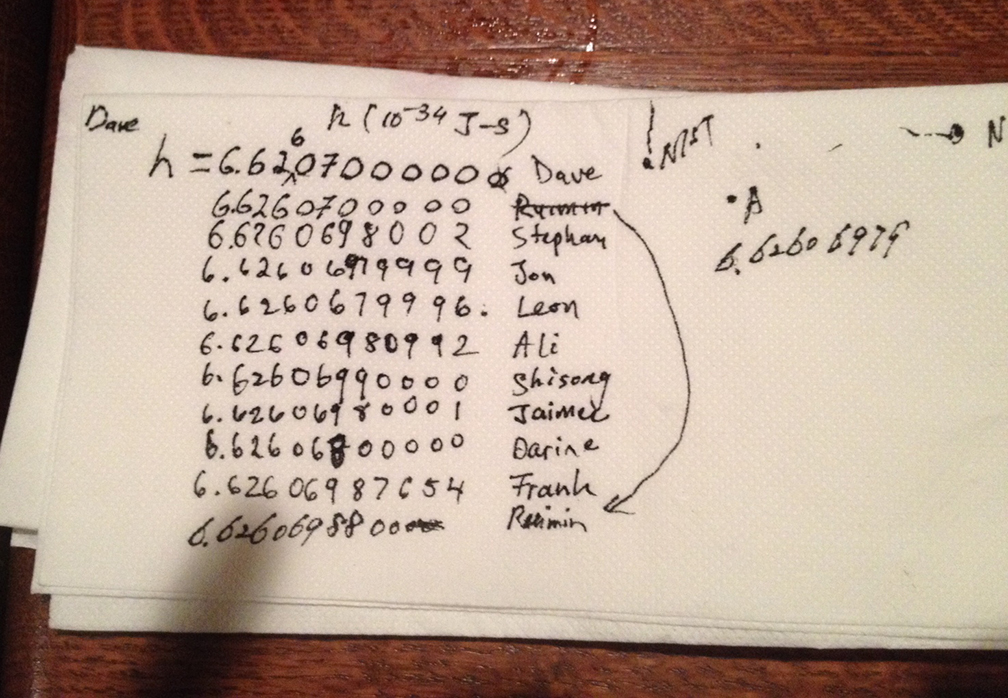 Dave
h (10-34 J-s)
h = 6.6260700000 Dave
6.6260700000 Ruimin
6.6260698002 Stephan
6.6260697999 9 Jon
6.6260679996. Leon
6.62606980992 Ali
6.62606990000 Shisong
6.6260698 0001 Jaimee
6.6260680 0000 Darine
6.62606987654 Frank
6.626069880 0 Ruimin
NIST
N
A
6.62606979